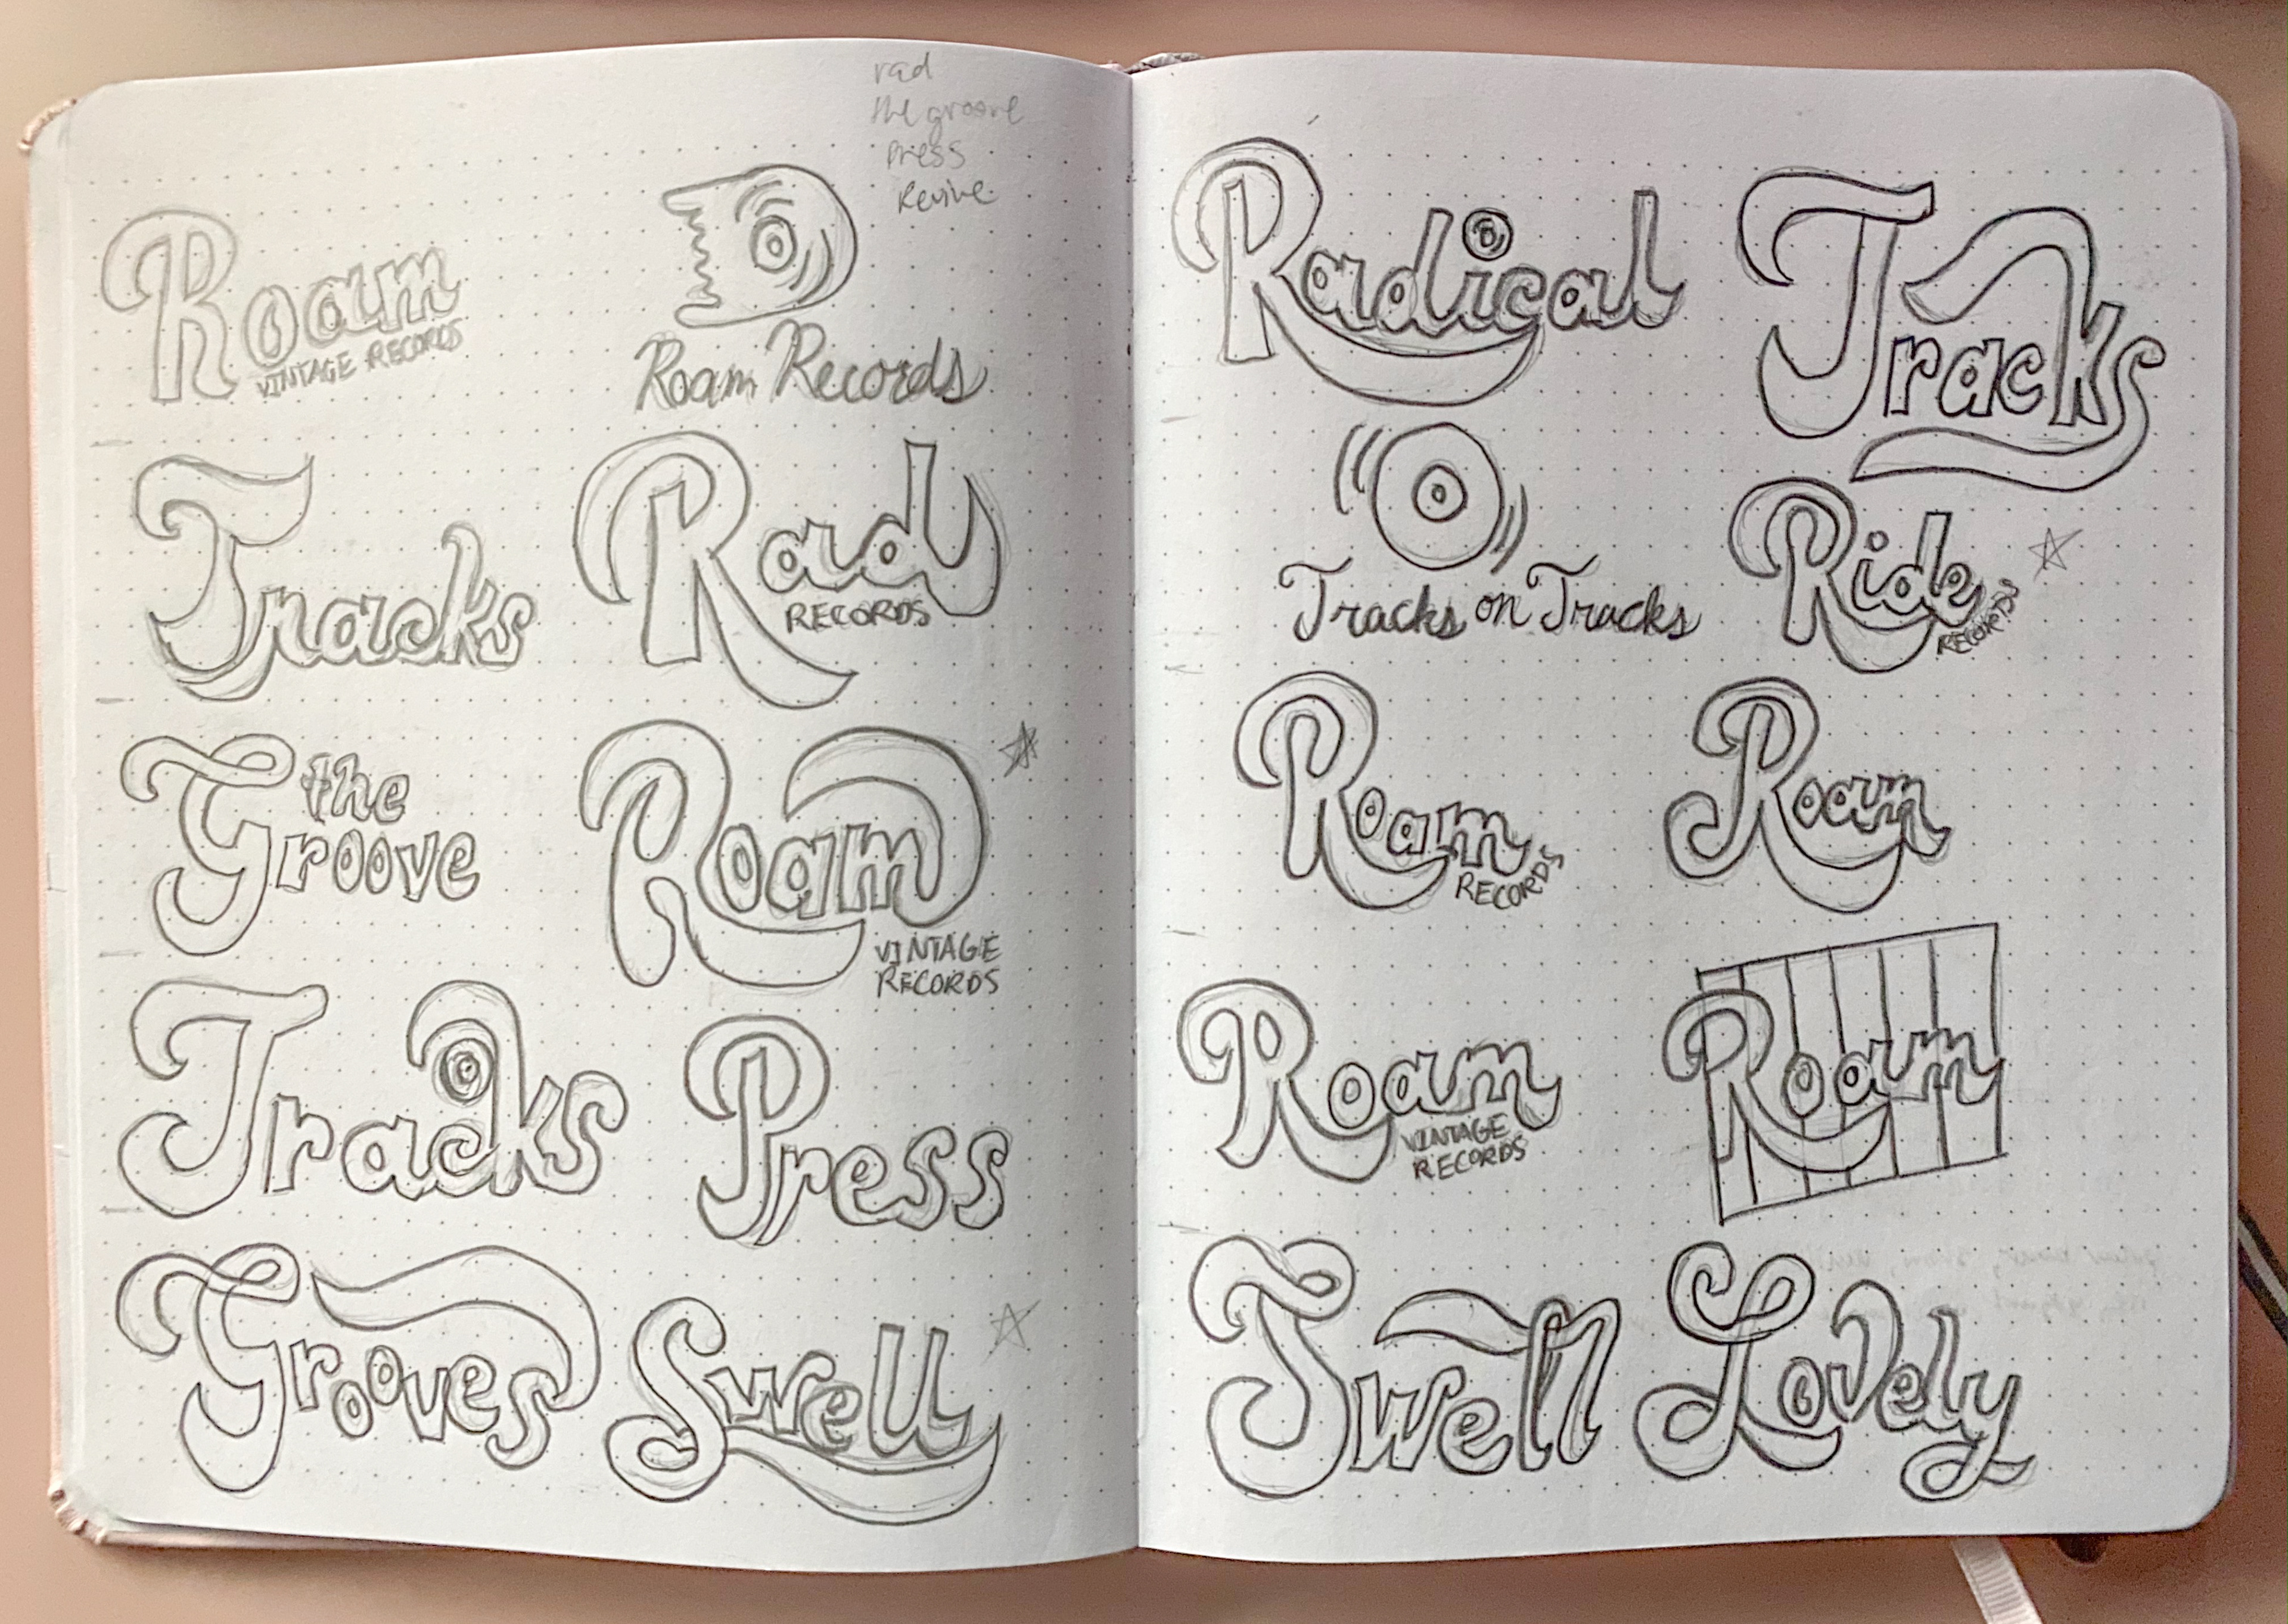 rad
the groove
press
Revive
Roam
VINTAGE RECORDS
Roam Records
Tracks
Rad
RECORDS
the
Groove
Roam
VINTAGE
RECORDS
Tracks
Press
Grooves
Swell
Radical
Tracks
Tracks on Tracks
Ride
RECORDS
Roam
RECORDS
Roam
Roam
VINTAGE
RECORDS
Roam
Swell
Lovely